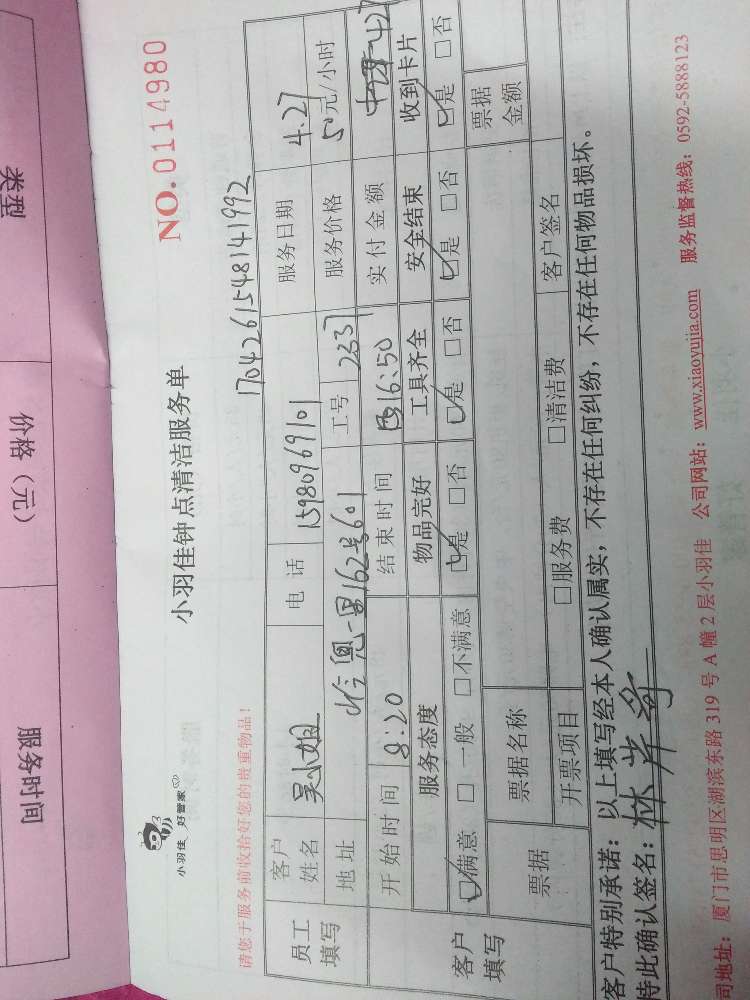 类型
价格（元）
服务时间
小羽佳 好管家
小羽佳钟点清洁服务单
NO.0114980
请您于服务前收拾好您的贵重物品！
170426154814 1992
员工填写
客户姓名 吴小姐 电话 15980969101 服务日期 4.27
地址 一里162号601 工号 2337 服务价格 50元/小时
客户填写
开始时间 8:20 结束时间 16:50 实付金额
服务态度 物品完好 工具齐全 安全结束 收到卡片
☑满意 □一般 □不满意 ☑是 □否 ☑是 □否 ☑是 □否 ☑是 □否
票据 票据名称 票据金额
开票项目 □服务费 □清洁费 客户签名
客户特别承诺：以上填写经本人确认属实，不存在任何纠纷，不存在任何物品损坏。
特此确认签名：林
司地址：厦门市思明区湖滨东路 319 号 A 幢 2 层小羽佳 公司网站：www.xiaoyujia.com 服务监督热线：0592-5888123